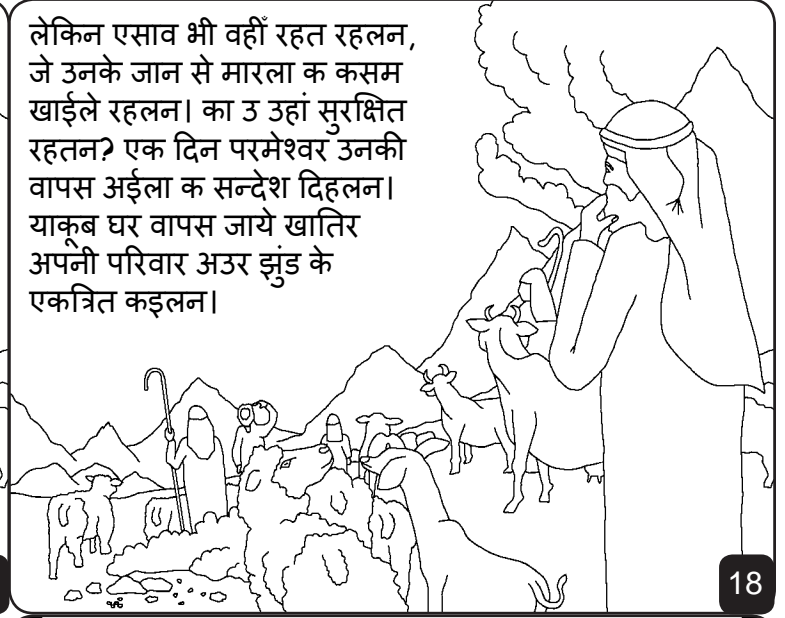 लेकिन एसाव भी वहीँ रहत रहलन,
जे उनके जान से मारला क कसम
खाईले रहलन। का उ उहां सुरक्षित
रहतन? एक दिन परमेश्वर उनकी
वापस अईला क सन्देश दिहलन।
याकूब घर वापस जाये खातिर
अपनी परिवार अउर झुंड के
एकत्रित कइलन।
18